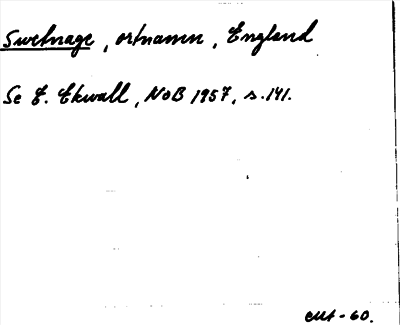 Swetnage, ortnamn, England
Se E. Ekwall, NoB 1957, s. 141.
-60.